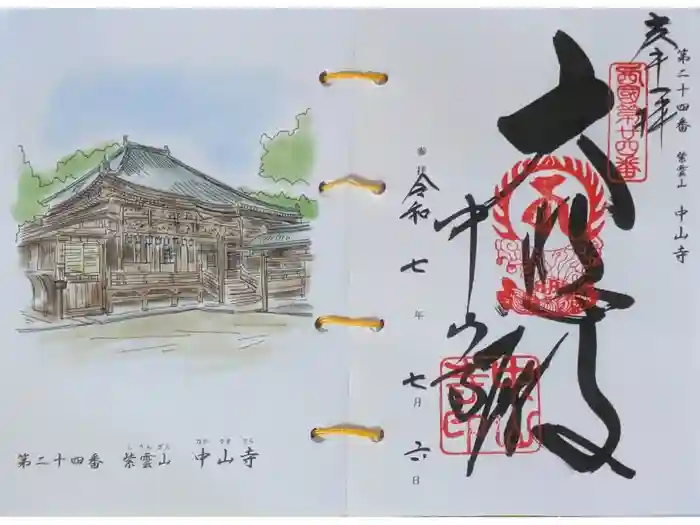 奉拝
第二十四番 紫雲山 中山寺
西國第廿四番
大悲殿
中山寺
参拝
令和 七 年 七 月 六 日
しうんざん なかやまでら
第二十四番 紫雲山 中山寺